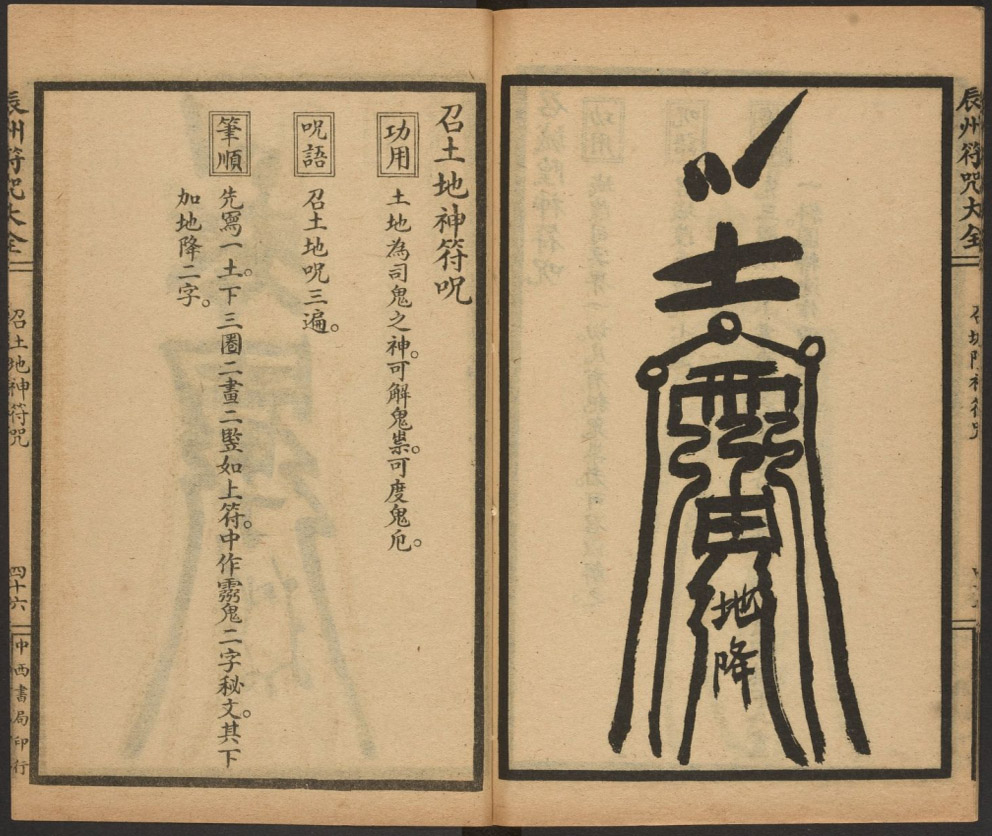 辰州符咒大全
召城隍神符咒
土
地降
召土地神符咒
功用
土地為司鬼之神。可解鬼祟。可度鬼厄。
咒語
召土地咒三遍。
筆順
先寫一土。下三圈二畫二竪如上符。中作霛鬼二字秘文。其下
加地降二字。
辰州符咒大全
召土地神符咒
四十六
中西書局印行